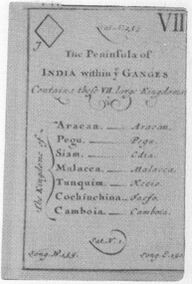 VII
7
The Peninsula of
INDIA within yᵉ GANGES
Contains these VII. large Kingdoms
The Kingdoms of
Aracan. Aracan.
Pegu. Pegu.
Siam. Odia.
Malacca. Malacca.
Tunquim.
Cochinchina.
Camboia. Camboia.
Lat. N.
Long.
Long. E.